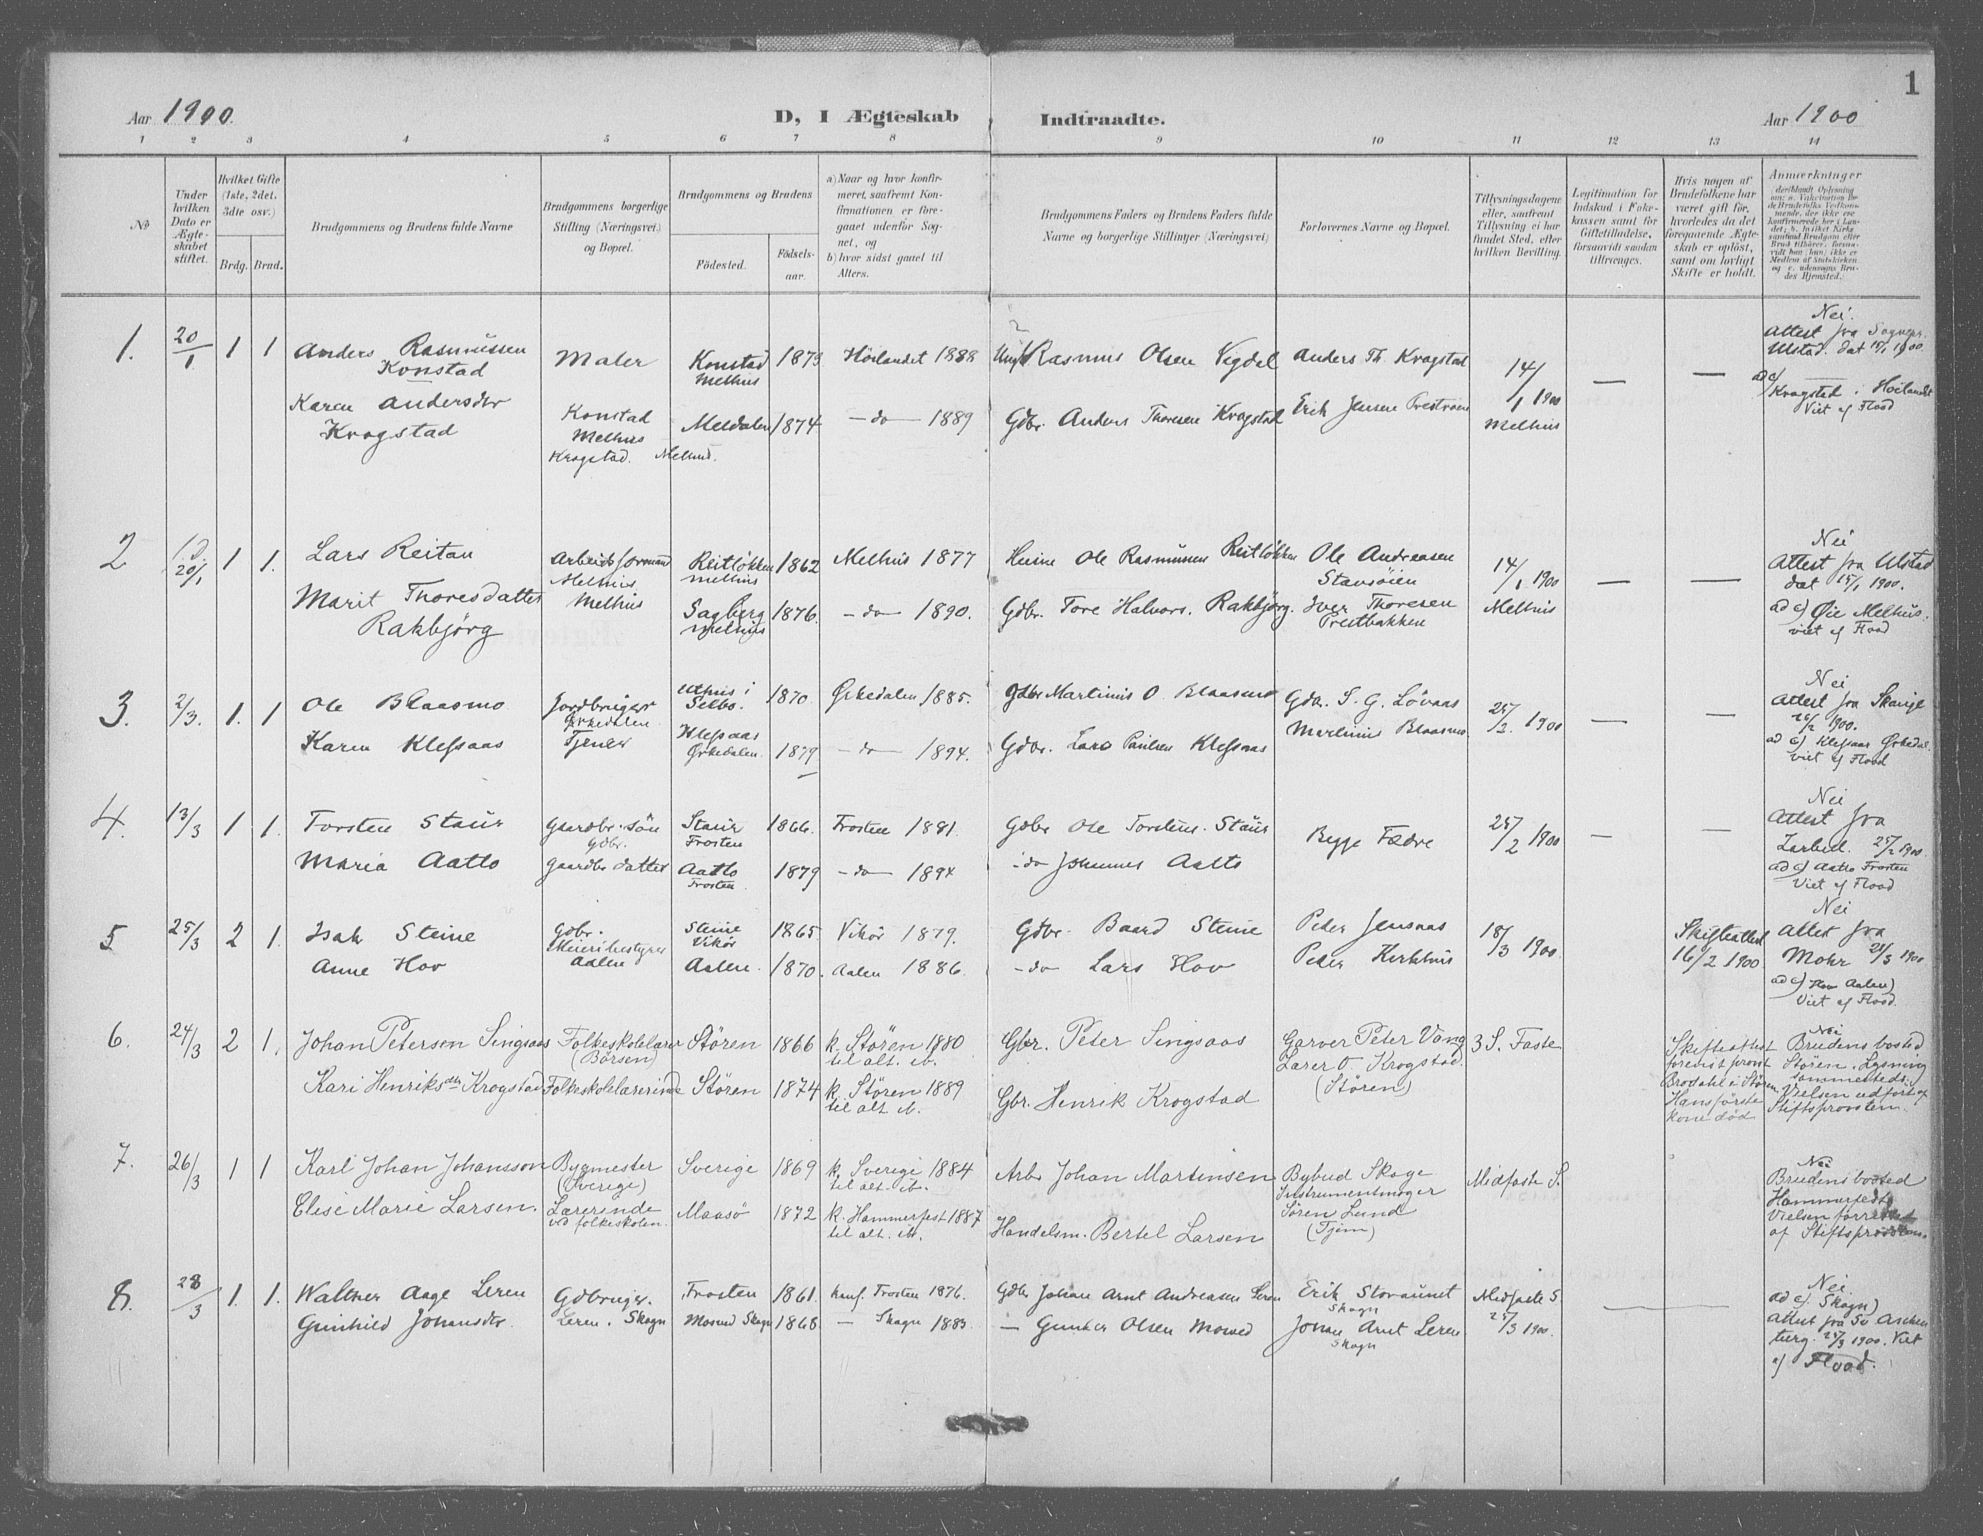 1
Aar 1900. D, I Ægteskab Indtraadte. Aar 1900
1 2 3 4 5 6 7 8 9 10 11 12 13 14
No
Under hvilken Dato er Ægteskabet stiftet.
Hvilket Gifte (1ste, 2det, 3die osv.)
Brdg. Brud.
Brudgommens og Brudens fulde Navne
Brudgommens borgerlige Stilling (Næringsvei) og Bopæl.
Brudgommens og Brudens
Fødested. Fødselsaar.
a) Naar og hvor konfirmeret, saafremt Konfirmationen er foregaaet udenfor Sognet, og
b) hvor sidst gaaet til Alters.
Brudgommens Faders og Brudens Faders fulde Navne og borgerlige Stillinger (Næringsvei)
Forlovernes Navne og Bopæl.
Tillysningsdagene eller, saafremt Tillysning ei har fundet Sted, efter hvilken Bevilling.
Legitimation for Indskud i Enkekassen samt for Giftetilladelse, forsaavidt saadan tiltrænges.
Hvis nogen af Brudefolkene har været gift før, hvorledes da det foregaaende Ægteskab er opløst, samt om lovligt Skifte er holdt.
Anmærkninger
1. 20/1 1 1 Anders Rasmussen Konstad Maler Konstad Melhus 1873 Höilandet 1888 Rasmus Olsen Vegdal Anders Th. Krogstad 14/1 1900 Melhus — — Nei. Attest fra Sognepr. Ulstad. dat 15/1 1900.
Karen Andersdtr Krogstad Konstad Melhus Krogstad. Melhus. Meldalen 1874 — do — 1889 Gdbr. Anders Thoresen Krogstad Erik Jensen ad c) Krogstad i Höilandet Viet af Flood
2 20/1 1 1. Lars Reitan Arbeidsformand Melhus Reitløkken Melhus 1862 Melhus 1877 Husm Ole Rasmussen Reitløkken Ole Andreasen Stavsøien 14/1 1900 Melhus — — Nei Attest fra Ulstad dat 15/1 1900.
Marit Thoresdatter Rakbjørg Melhus Sagberg Melhus 1876. — do — 1890. Gdbr. Tore Halvors. Rakbjörg. Iver Thoresen Prestbakken ad c) Øie Melhus. viet af Flood
3. 2/3. 1. 1 Ole Blaasmo Jordbruger Ørkedalen Selbo. 1870 Ørkedalen 1885. Gdbr Martinus O. Blaasmo Gdbr. S. G. Løvaas 25/2. 1900 — — Nei Attest fra 26/2 1900.
Karen Klefsaas Tjener Klefsaas Ørkedalen. 1879 — do — 1894. Gdbr. Lars Paulsen Klefsaas Martinus Blaasmo. ad c) Klefsaas Ørkedal. viet af Flood
4. 13/3 1 1. Torsten Staur Gaardbr. søn Gdbr. Staur Frosten 1866. Frosten 1881. Gdbr Ole Torstens. Staur Begge Fædre 25/2 1900 — — Nei Attest fra 25/2 1900.
Maria Aatto Gaardbr datter Aatto Frosten 1879 — do — 1894 — do Johannes Aatto ad c) Aatto Frosten Viet af Flood
5 25/3 2 1. Isak Steine Gdbr. Meieribestyrer Aalen Steine Vikör 1865 Vikör 1879. Gdbr. Baard Steine Peder Jensaas 18/3 1900. Skifteattest 16/2 1900 Nei Attest fra Mohr 24/3 1900
Anne Hov Aalen. 1870. Aalen 1886. — do Lars Hov Peder Kirkhus ad c) Hov Aalen) Viet af Flood.
6. 24/3 2 1. Johan Petersen Singsaas Folkeskolelærer (Börsen) Stören 1866 k. Stören 1880 til alt. ib. Gbr. Peter Singsaas Garver Peter Vang Lærer O. Krogstad. (Stören) 3 S. Faste Skifteattest forevist provst Brodahl i Stören. Hans første kone död Nei Brudens bosted Stören. Lysning sammesteds. Vielsen udført af Stiftsprovsten.
Kari Henriksdtr Krogstad Folkeskolelærerinde Stören 1874 k. Stören 1889 til alt. ib. Gbr. Henrik Krogstad
7. 26/3 1 1 Karl Johan Johansson Bygmester (Sverige) Sverige 1869 k. Sverige 1884 til alt. ib. Arb. Johan Martinsen Bybud Skage Instrumentmager Sören Lund (Tjem) Midfaste S. Nei Brudens bosted Hammerfest. Vielsen forrettet af Stiftsprovsten.
Elise Marie Larsen. Lærerinde ved folkeskolen. Maasö 1872 k. Hammerfest 1887 til alt. ib. Handelsm. Bertel Larsen
8. 28/3 1. 1. Waltner Aage Leren Gdbruger. Leren. Skogn Frosten 1861. konf. Frosten 1876. Gdbr Johan Arnt Andreasen Leren Erik Skogn Midfaste S 25/3 1900. — — Nei ad c) Skogn) Attest fra 25/3 1900. Viet af Flood.
Gunhild Johansdtr. Mosund Skogn 1868 — Skogn 1883. — Gunder Olsen Johan Arnt Leren Skogn